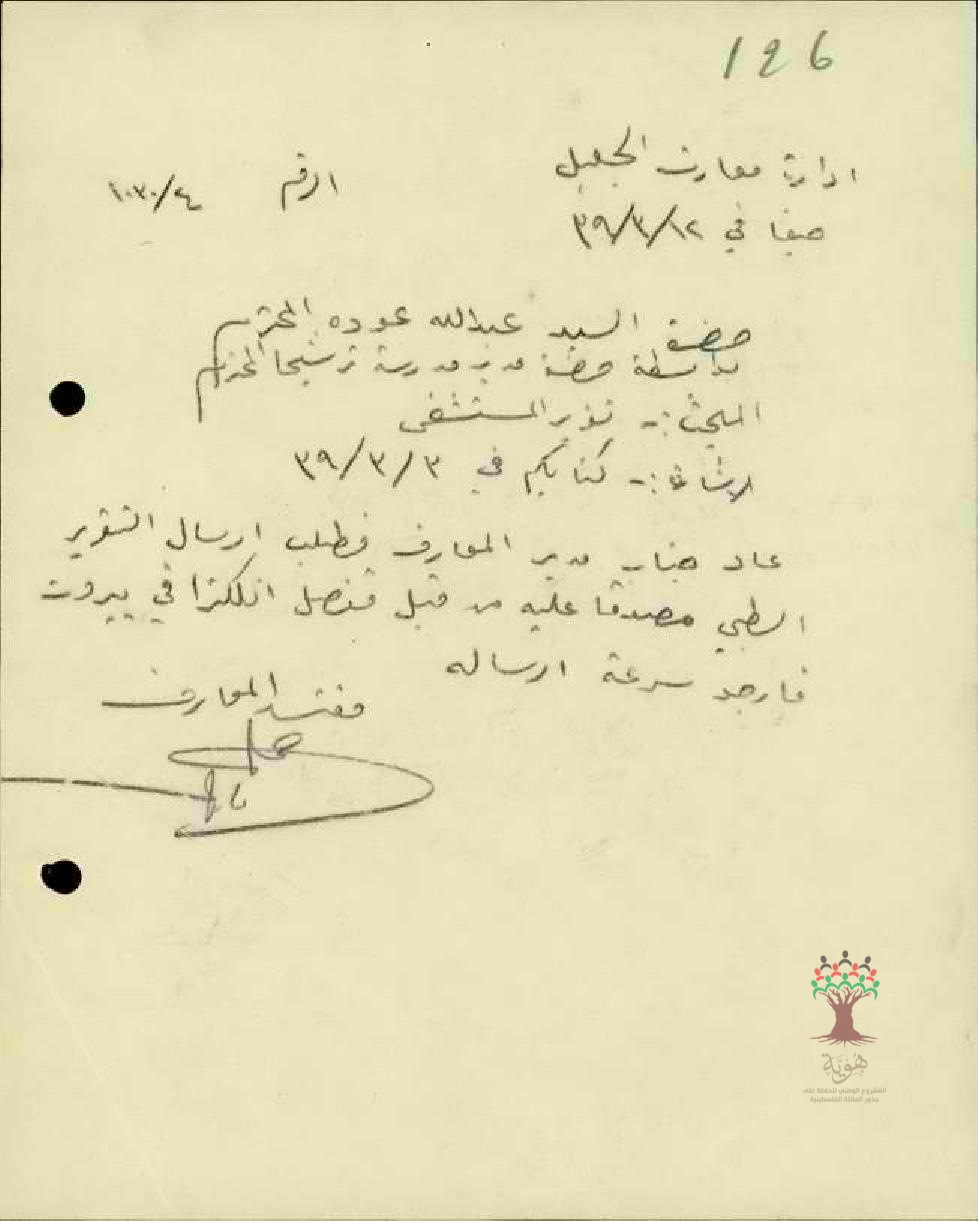 126
ادارة معارف الجليل الرقم ١٠٣٠/٤
حيفا في ٣٩/٣/١٢
حضرة السيد عبدالله عوده المحترم
بواسطة حضرة مدير مدرسة ترشيحا المحترم
المبحث :- تقرير المستشفى
الاشارة :- كتابكم في ٣٩/٣/٣
عاد جناب مدير المعارف فطلب ارسال التقرير
الطبي مصدقا عليه من قبل قنصل انكلترا في بيروت
فارجو سرعة ارساله
مفتش المعارف
هُويَّة
المشروع الوطني للحفاظ على
جذور العائلة الفلسطينية